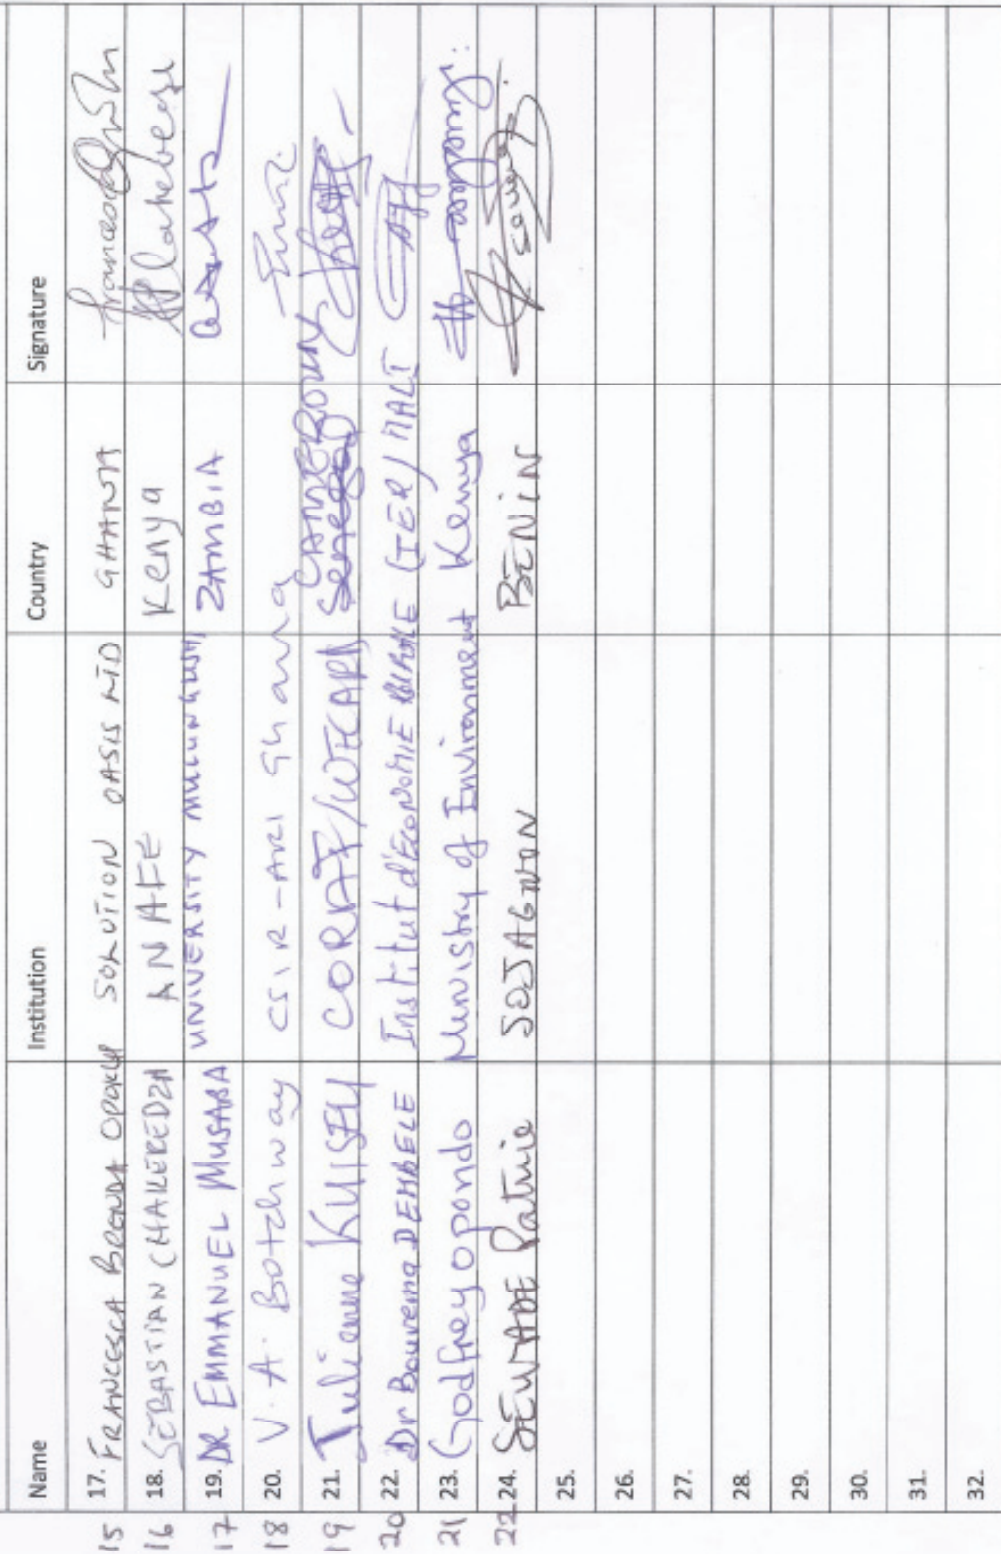 Name Institution Country Signature
15 17. FRANCESCA BRENDA OPOKU SOLUTION OASIS LTD GHANA
16 18. SEBASTIAN CHAKEREDZA ANAFE Kenya
17 19. DR EMMANUEL MUSABA UNIVERSITY MULUNGUSHI ZAMBIA
18 20. V. A. Botchway CSIR-ARI Ghana
19 21. Julienne KUISEU CORAF/WECARD Senegal CAMEROUN
20 22. Dr Bourema DEMBELE Institut d'ECONOMIE RURALE (IER) MALI
21 23. Godfrey Opondo Ministry of Environment Kenya
22 24. SEWADE Patrice SOJAGNON BENIN
25.
26.
27.
28.
29.
30.
31.
32.